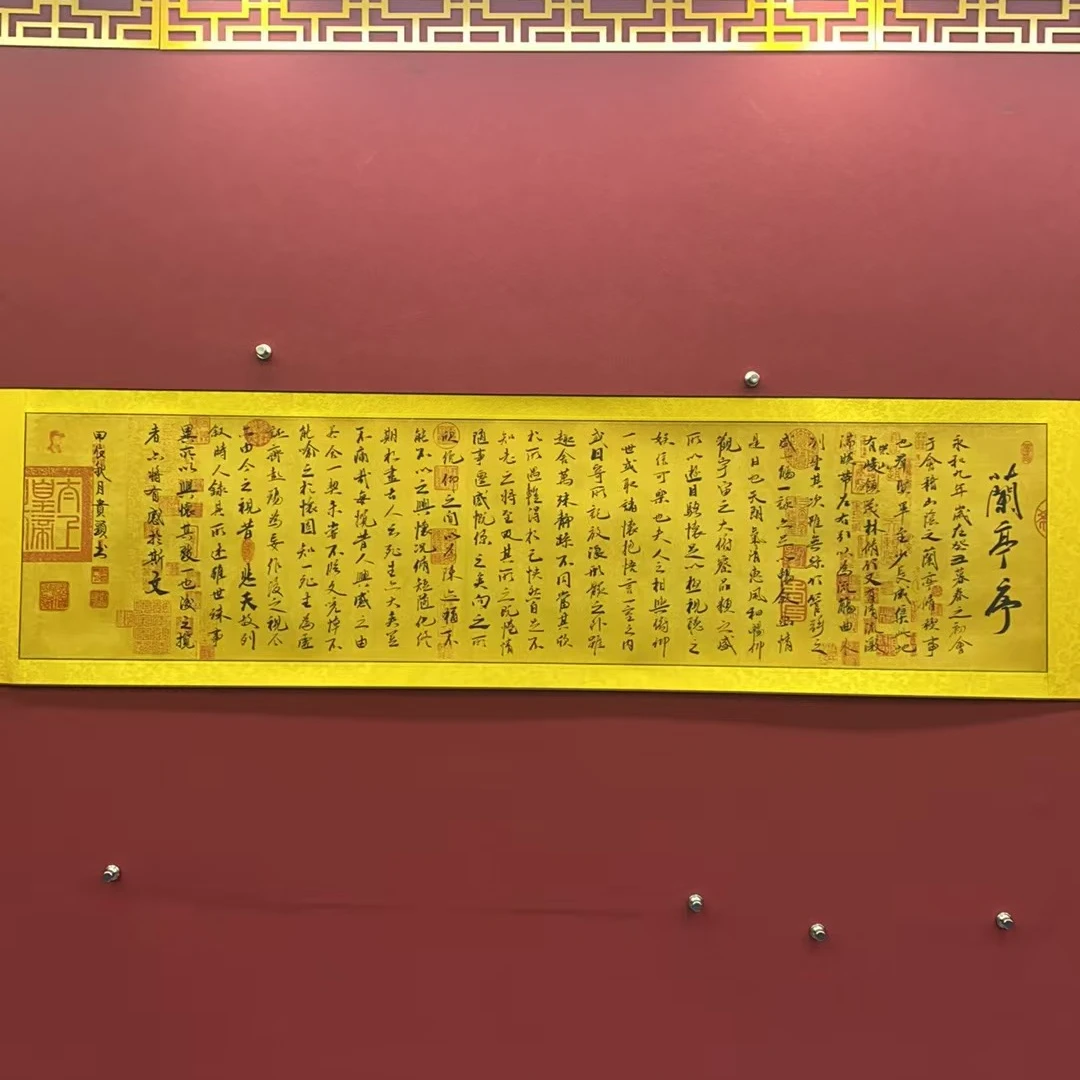 蘭亭序
永和九年歲在癸丑暮春之初會
于會稽山陰之蘭亭脩稧事
也群賢畢至少長咸集此地
有崇山峻領茂林脩竹又有清流激
湍暎帶左右引以為流觴曲水
列坐其次雖無絲竹管弦之
盛一觴一詠亦足以暢敘幽情
是日也天朗氣清惠風和暢仰
觀宇宙之大俯察品類之盛
所以遊目騁懷足以極視聽之
娛信可樂也夫人之相與俯仰
一世或取諸懷抱悟言一室之內
或因寄所託放浪形骸之外雖
趣舍萬殊靜躁不同當其欣
於所遇暫得於己快然自足不
知老之將至及其所之既惓情
隨事遷感慨係之矣向之所
欣俛仰之閒以為陳迹猶不
能不以之興懷況脩短隨化終
期於盡古人云死生亦大矣豈
不痛哉每攬昔人興感之由
若合一契未嘗不臨文嗟悼不
能喻之於懷固知一死生為虛
誕齊彭殤為妄作後之視今
亦由今之視昔悲夫故列
敘時人錄其所述雖世殊事
異所以興懷其致一也後之攬
者亦將有感於斯文
甲辰秋月貴顯書
太上皇帝